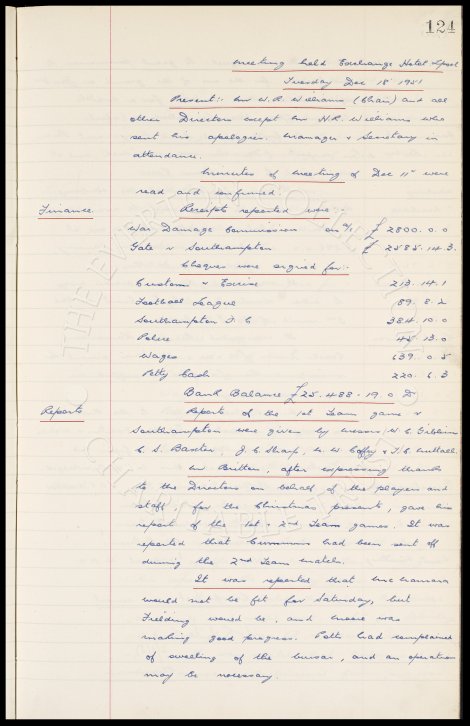 124
Meeting held Exchange Hotel L'pool
Tuesday Dec 18th 1951
Present:- Mr W.R. Williams (Chair) and all
other Directors except Mr N.R. Williams who
sent his apologies. Manager & Secretary in
attendance.
Minutes of meeting of Dec 11th were
read and confirmed.
Finance. Receipts reported were:-
War Damage Commission on a/c £ 2800. 0. 0
Gate v Southampton £ 2585. 14. 3.
Cheques were signed for:-
Customs & Excise 213. 14. 1
Football League 189. 8. 2
Southampton F. C 384. 10. 0
Police 45. 13. 0
Wages 639. 0. 5
Petty Cash 220. 6. 3
Bank Balance £25.488-19.0 Dr
Reports Report of the 1st Team game v
Southampton were given by Messrs W. C. Gibbins
C. S. Baxter, J. C. Sharp, M. W. Coffey & T. C. Nuttall.
Mr Britton, after expressing thanks
to the Directors on behalf of the players and
staff for the Christmas presents, gave his
report of the 1st & 2nd Team games. It was
reported that Cummins had been sent off
during the 2nd Team match.
It was reported that McNamara
would not be fit for Saturday, but
Fielding would be, and Moore was
making good progress. Potts had complained
of swelling of the bursar, and an operation
may be necessary.
THE EVERTON COLLECTION
CHARITABLE TRUST